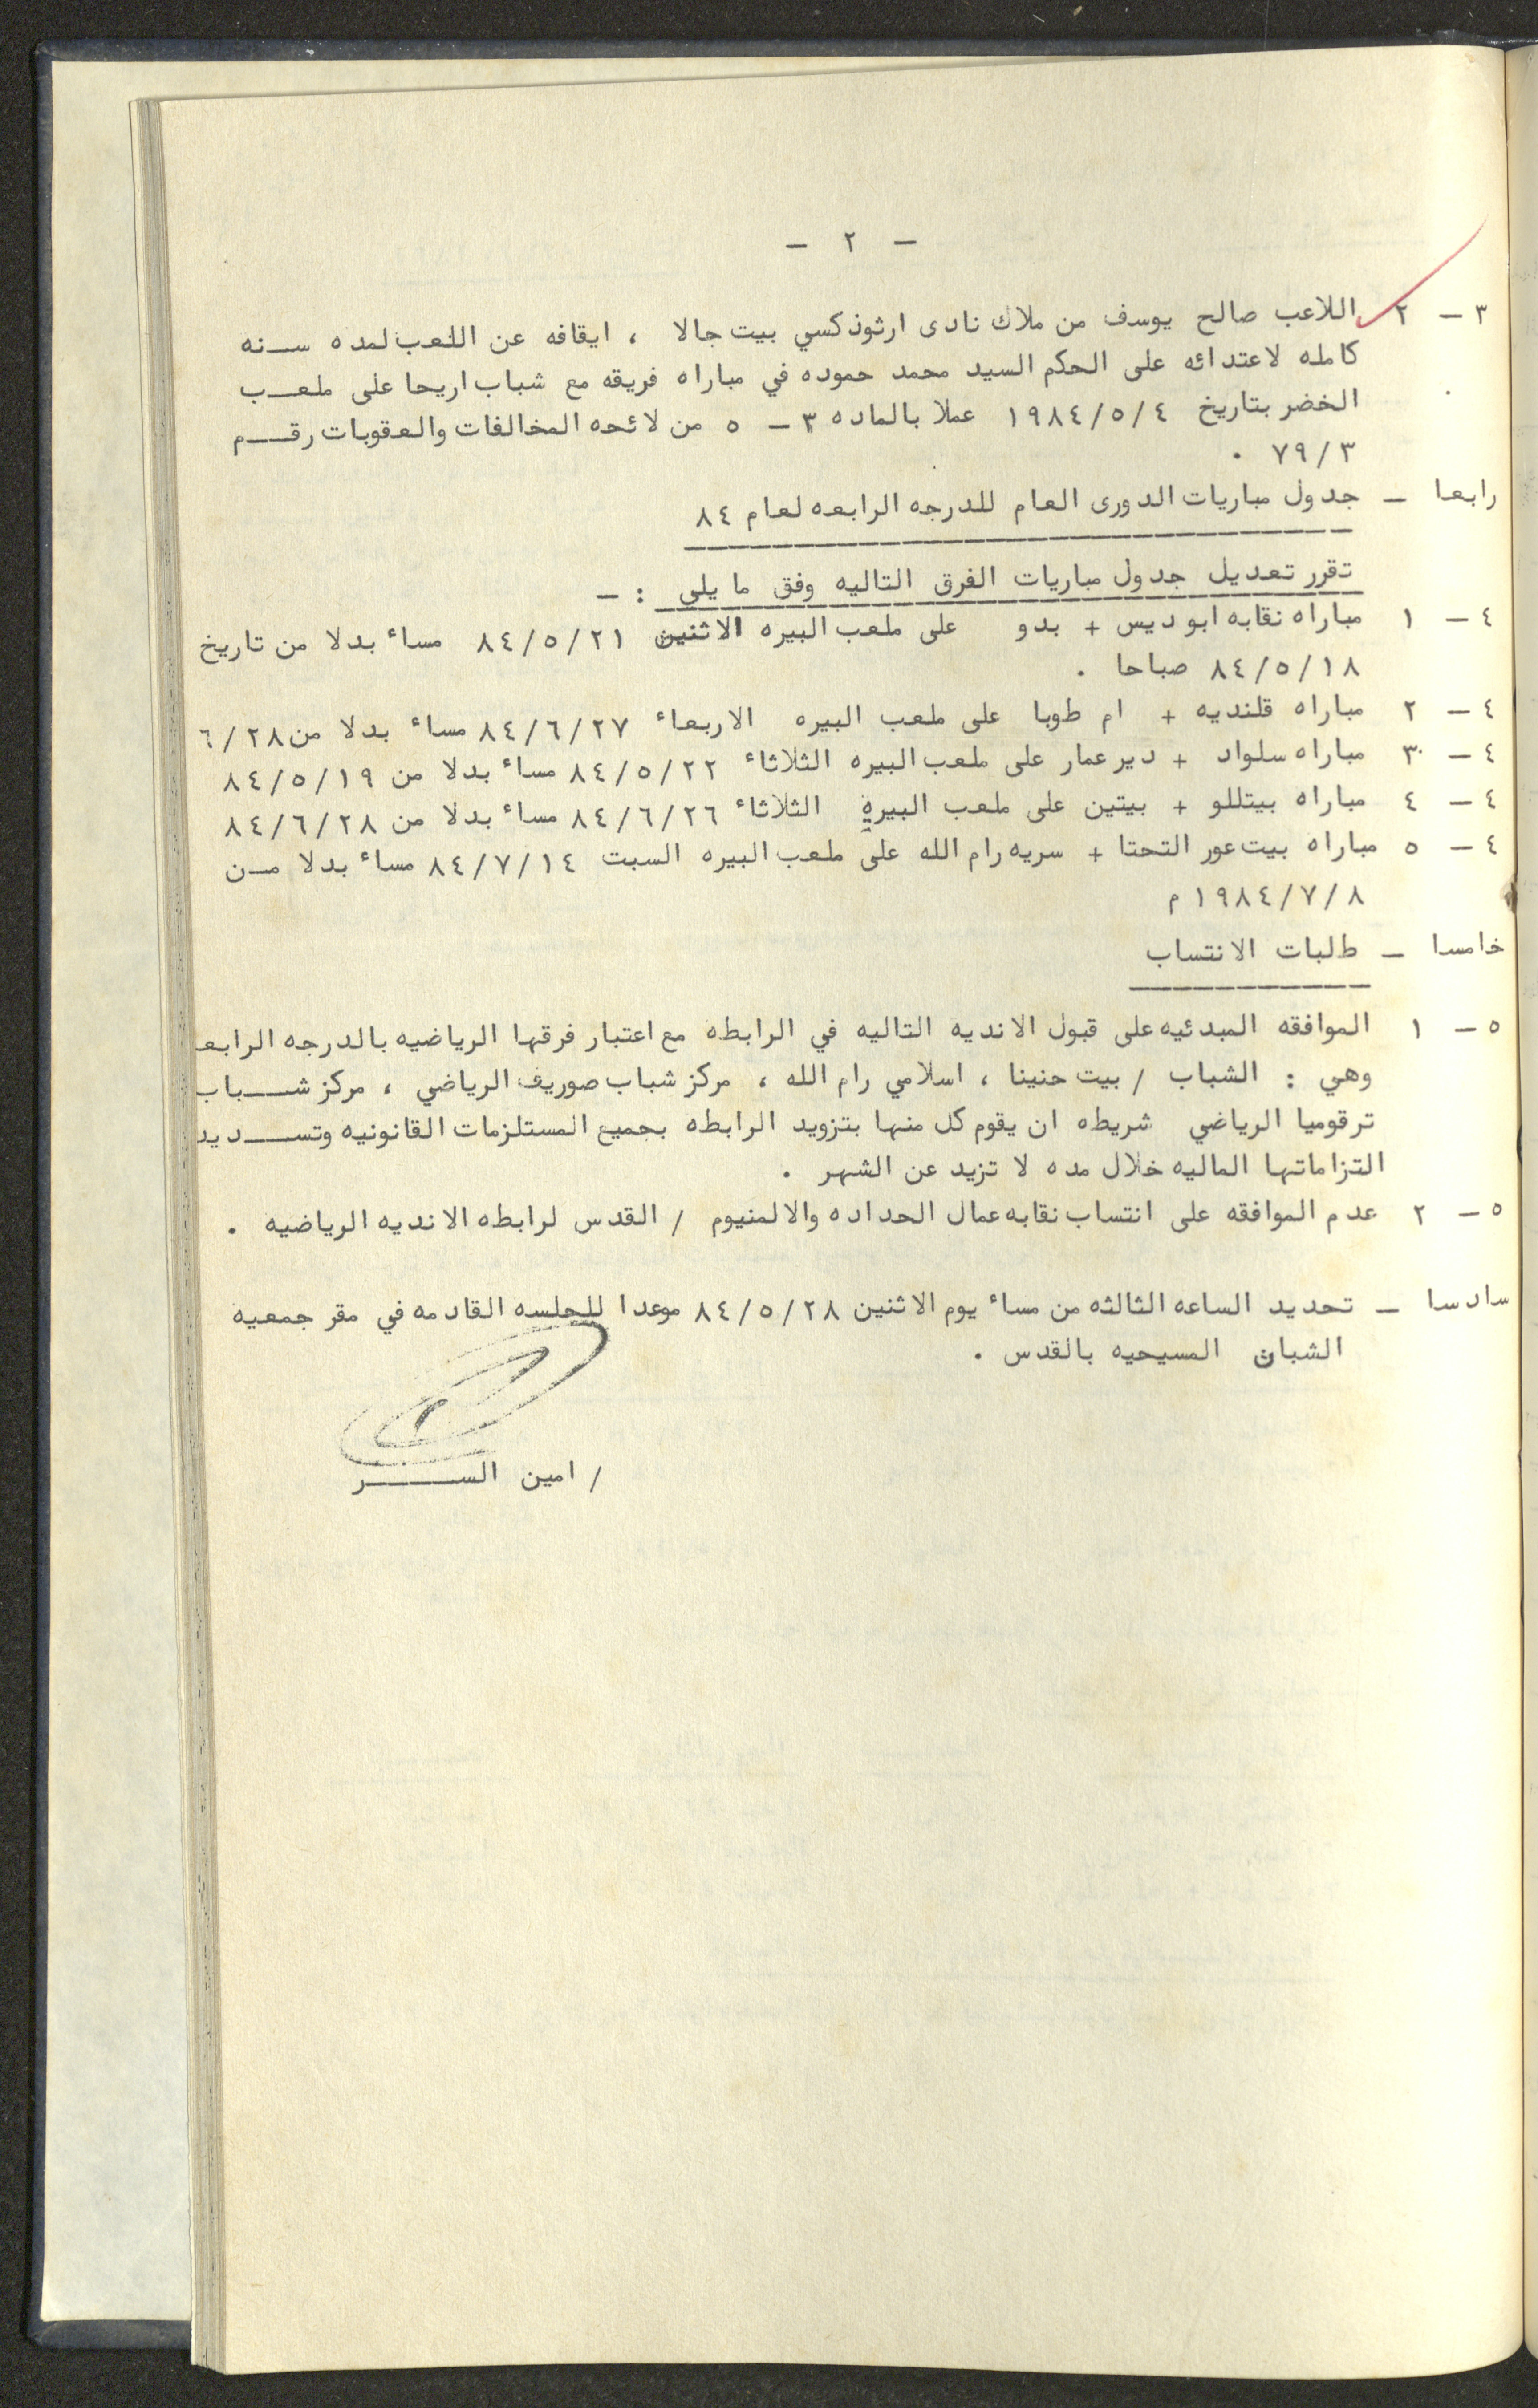 - ٢ -
٣ - ٢ اللاعب صالح يوسف من ملاك نادى ارثوذكسي بيت جالا ، ايقافه عن اللعب لمده سـنه
كامله لاعتدائه على الحكم السيد محمد حموده في مباراه فريقه مع شباب اريحا على ملعـب
الخضر بتاريخ ١٩٨٤/٥/٤ عملا بالماده ٣ - ٥ من لائحه المخالفات والعقوبات رقـم
٧٩/٣ .
رابعا - جدول مباريات الدورى العام للدرجه الرابعه لعام ٨٤
تقرر تعديل جدول مباريات الفرق التاليه وفق ما يلي : -
٤ - ١ مباراه نقابه ابو ديس + بدو على ملعب البيره الاثنين ٨٤/٥/٢١ مساء بدلا من تاريخ
٨٤/٥/١٨ صباحا .
٤ - ٢ مباراه قلنديه + ام طوبا على ملعب البيره الاربعاء ٨٤/٦/٢٧ مساء بدلا من ٦/٢٨
٤ - ٣ مباراه سلواد + دير عمار على ملعب البيره الثلاثاء ٨٤/٥/٢٢ مساء بدلا من ٨٤/٥/١٩
٤ - ٤ مباراه بيتللو + بيتين على ملعب البيره الثلاثاء ٨٤/٦/٢٦ مساء بدلا من ٨٤/٦/٢٨
٤ - ٥ مباراه بيت عور التحتا + سريه رام الله على ملعب البيره السبت ٨٤/٧/١٤ مساء بدلا مـن
١٩٨٤/٧/٨ م
خامسا - طلبات الانتساب
٥ - ١ الموافقه المبدئيه على قبول الانديه التاليه في الرابطه مع اعتبار فرقها الرياضيه بالدرجه الرابعـ
وهي : الشباب / بيت حنينا ، اسلامي رام الله ، مركز شباب صوريف الرياضي ، مركز شــباب
ترقوميا الرياضي شريطه ان يقوم كل منها بتزويد الرابطه بجميع المستلزمات القانونيه وتســديد
التزاماتها الماليه خلال مده لا تزيد عن الشهر .
٥ - ٢ عدم الموافقه على انتساب نقابه عمال الحداده والالمنيوم / القدس لرابطه الانديه الرياضيه .
سادسا - تحديد الساعه الثالثه من مساء يوم الاثنين ٨٤/٥/٢٨ موعدا للجلسه القادمه في مقر جمعيه
الشبان المسيحيه بالقدس .
/ امين الســـــر